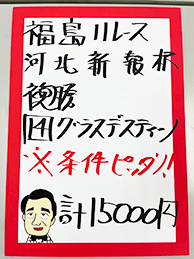 福島11レース
河北新報杯
複勝
4グラスデスティーノ
※条件ピッタリ!
計15000円